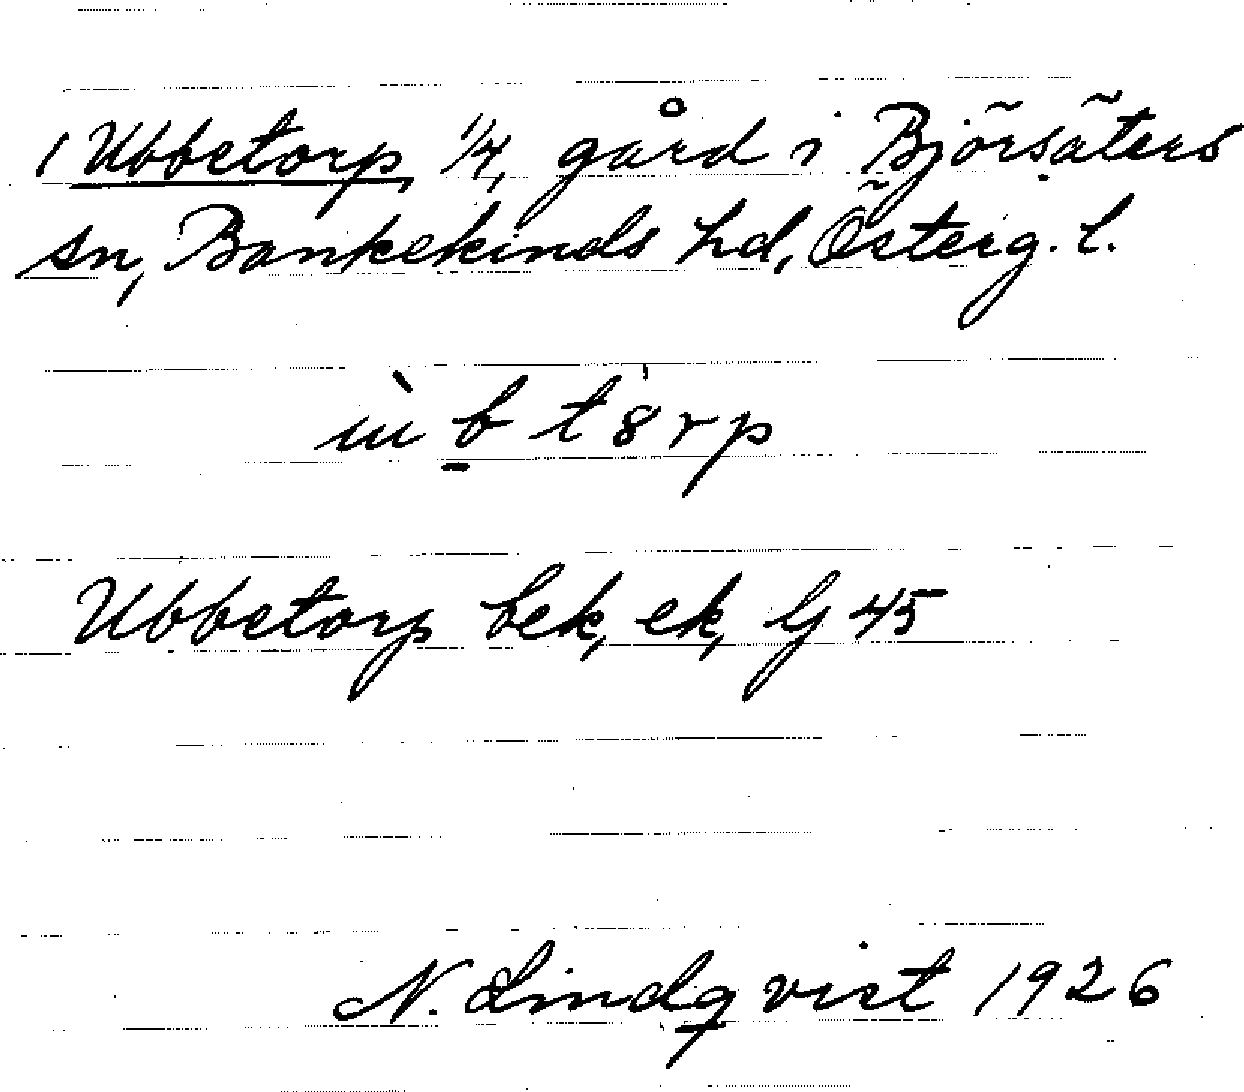 1 Ubbetorp, 1/4, gård i Björsäters
sn, Bankekinds hd, Österg. l.
ùb̲t8rp
Ubbetorp bek, ek, Gj 45
N. Lindqvist 1926